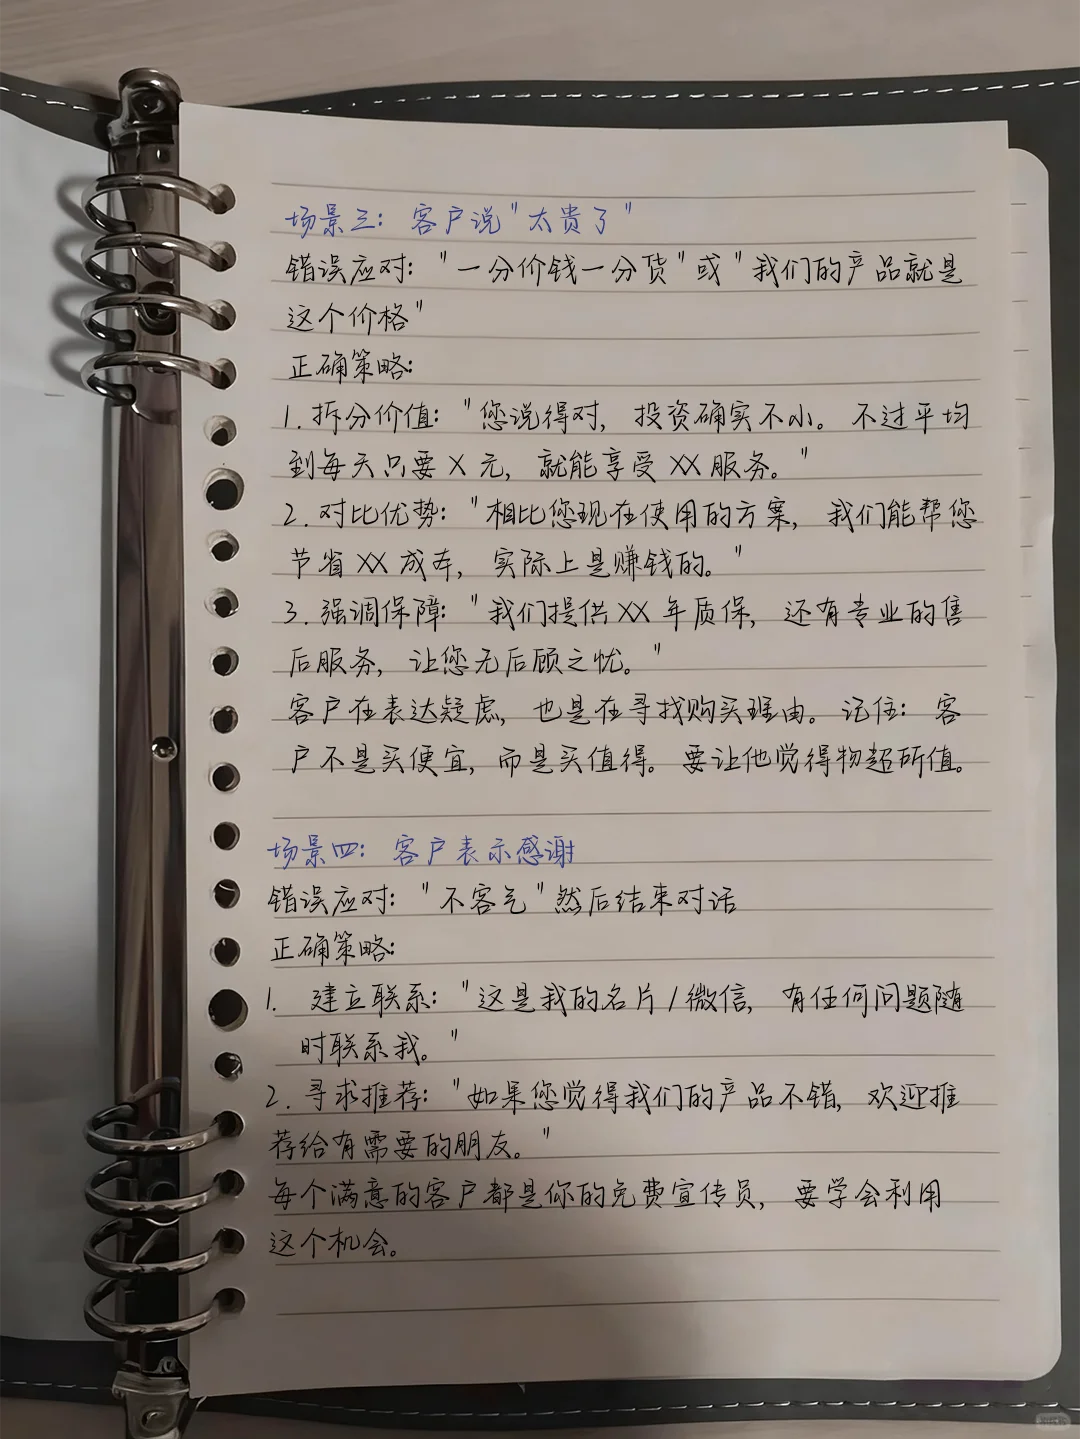 场景三：客户说"太贵了"
错误应对："一分价钱一分货"或"我们的产品就是
这个价格"
正确策略：
1.拆分价值："您说得对，投资确实不小。不过平均
到每天只要X元，就能享受XX服务。"
2.对比优势："相比您现在使用的方案，我们能帮您
节省XX成本，实际上是赚钱的。"
3.强调保障："我们提供XX年质保，还有专业的售
后服务，让您无后顾之忧。"
客户在表达疑虑，也是在寻找购买理由。记住：客
户不是买便宜，而是买值得。要让他觉得物超所值。
场景四：客户表示感谢
错误应对："不客气"然后结束对话
正确策略：
1. 建立联系："这是我的名片/微信，有任何问题随
时联系我。"
2.寻求推荐："如果您觉得我们的产品不错，欢迎推
荐给有需要的朋友。"
每个满意的客户都是你的免费宣传员，要学会利用
这个机会。